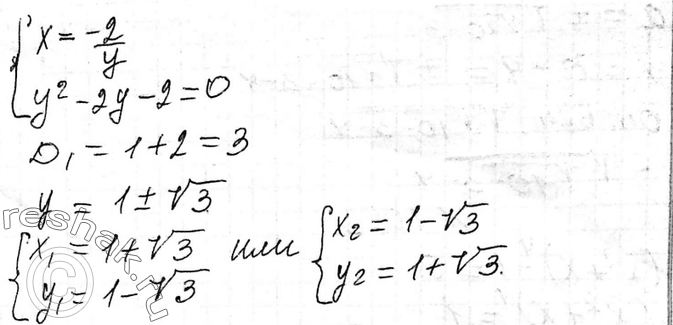 x = -2/y
y² - 2y - 2 = 0
D₁ = 1 + 2 = 3
y = 1 ± √3
{ x₁ = 1 + √3 или { x₂ = 1 - √3
y₁ = 1 - √3 y₂ = 1 + √3.
reshak.ru